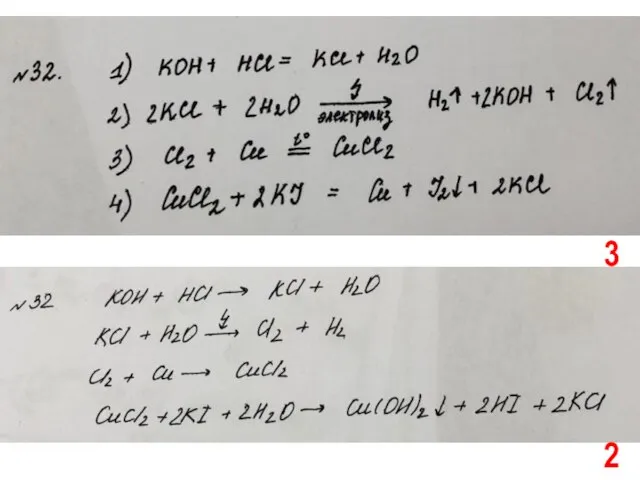 №32. 1) KOH + HCl = KCl + H2O
2) 2KCl + 2H2O ⟶ H2↑ + 2KOH + Cl2↑
электролиз
3) Cl2 + Cu t°= CuCl2
4) CuCl2 + 2KJ = Cu + J2↓ + 2KCl
3
№32 KOH + HCl ⟶ KCl + H2O
KCl + H2O ⟶ Cl2 + H2
Cl2 + Cu ⟶ CuCl2
CuCl2 + 2KI + 2H2O ⟶ Cu(OH)2↓ + 2HI + 2KCl
2